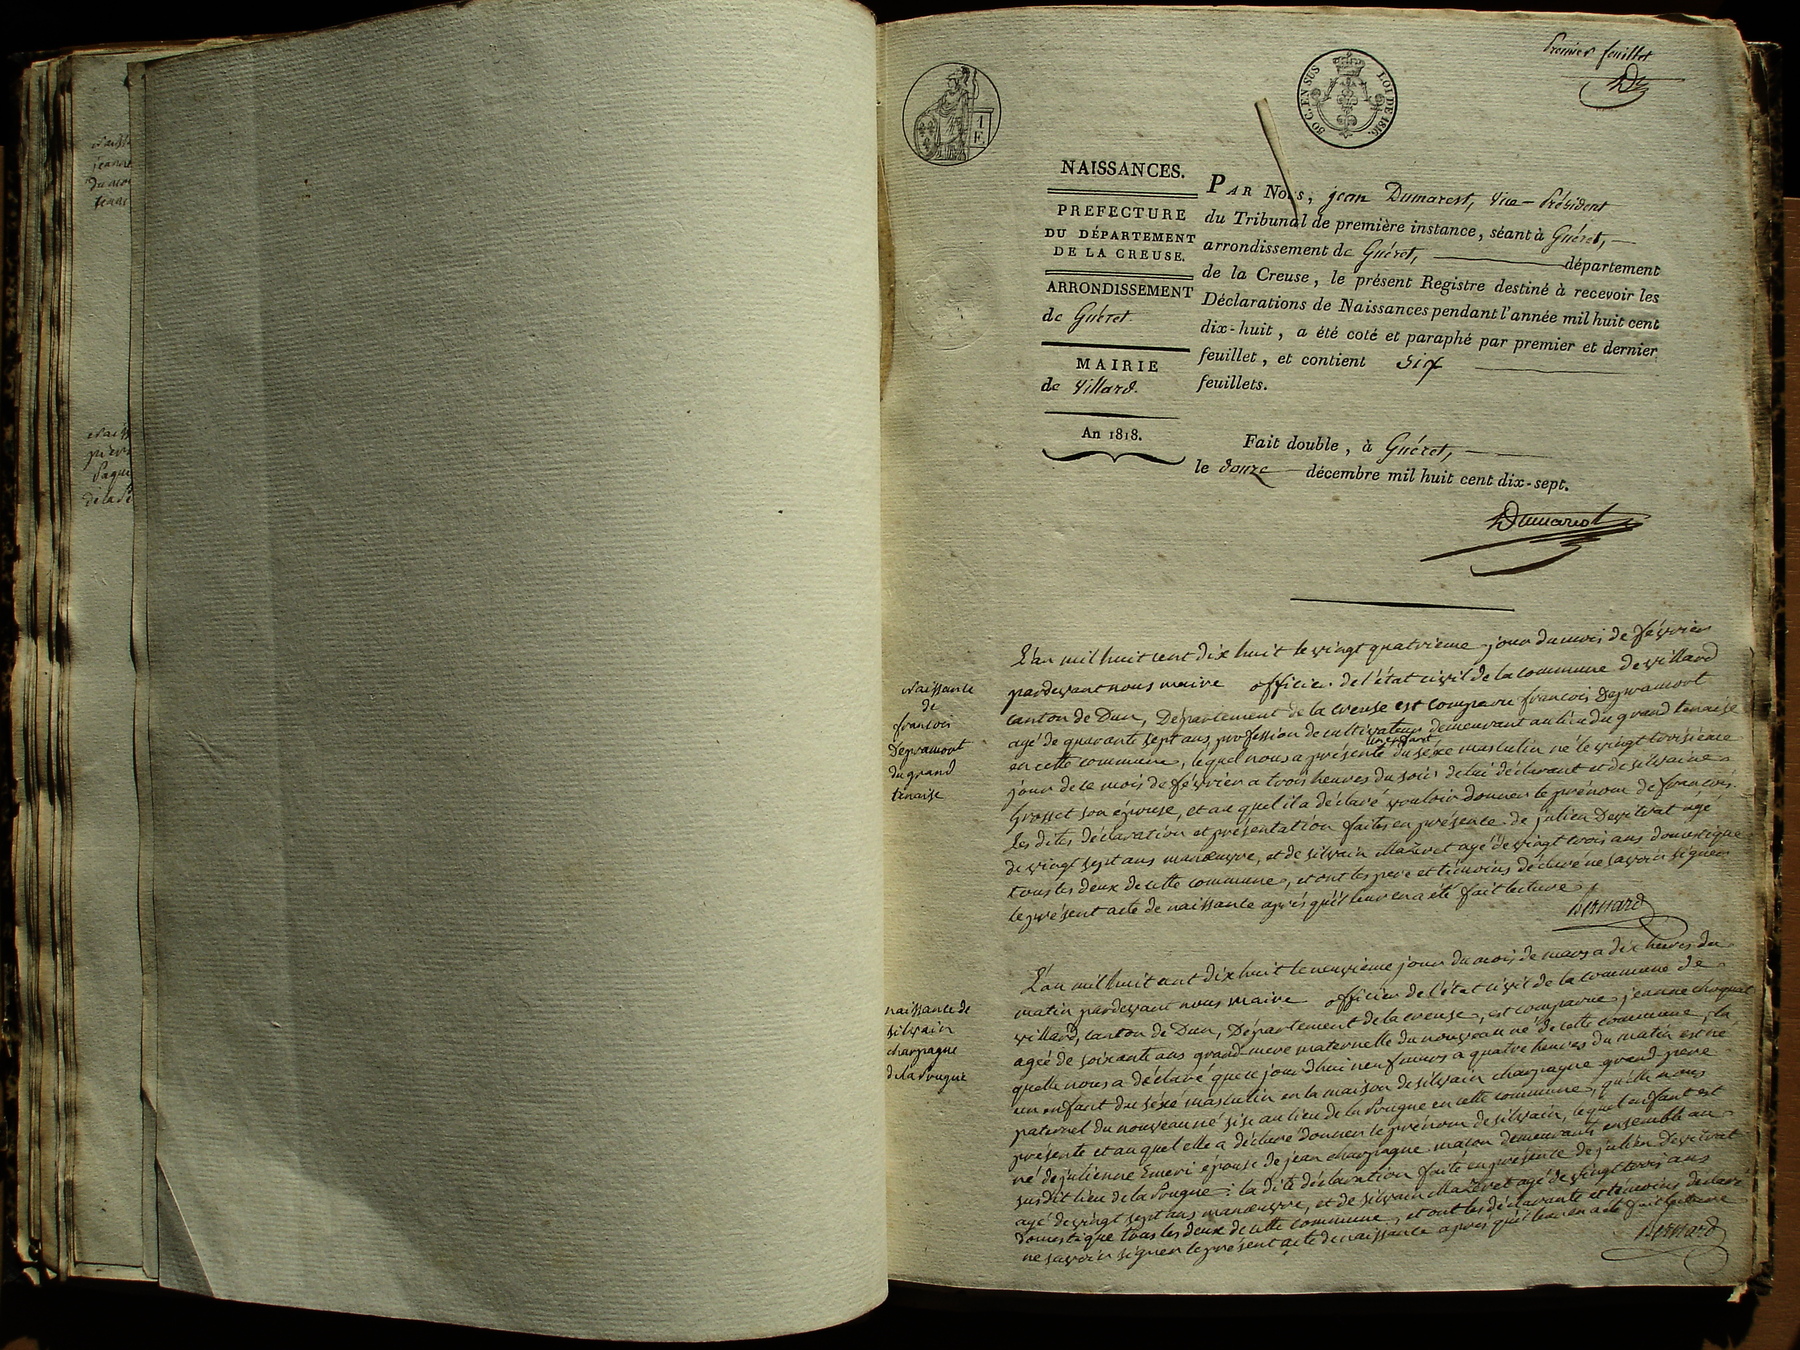 Premier feuillet
50 C. EN SUS
LOI DE 1816.
1
F.
NAISSANCES.
PREFECTURE
DU DÉPARTEMENT
DE LA CREUSE.
ARRONDISSEMENT
de Guéret
MAIRIE
de Villard.
An 1818.
PAR Nous, jean Dumarest, Vice-Président
du Tribunal de première instance, séant à Guéret,
arrondissement de Guéret, département
de la Creuse, le présent Registre destiné à recevoir les
Déclarations de Naissances pendant l'année mil huit cent
dix-huit, a été coté et paraphé par premier et dernier
feuillet, et contient Six
feuillets.
Fait double, à Guéret,
le douze décembre mil huit cent dix-sept.
Dumarest
Naissance
de
francois
Depramort
du grand
tenaise
L'an mil huit cent dix huit le vingt quatrieme jour du mois de février
pardevant nous maire officier de l'état civil de la commune de villard
canton de Dun, Département de la creuse est comparu francois Depramort
agé de quarante sept ans profession de cultivateur demeurant au lieu du grand tenaise
en cette commune, lequel nous a présenté un enfant du séxe masculin né le vingt troisieme
jour de ce mois de février a trois heures du soir de lui déclarant et de silvaine
Grosset son épouse, et au quel il a déclaré vouloir donner le prénom de francois.
les dites déclaration et présentation faites en présence de julien Devitrat agé
de vingt sept ans manœuvre, et de silvain Mazeret agé de vingt trois ans domestique
tous les deux de cette commune, et ont les pere et témoins déclaré ne savoir signer
le présent acte de naissance après qu'il leur en a été fait lecture
Bernard
naissance de
silvain
charpagne
de la Pougne
L'an mil huit cent dix huit le neuvieme jour du mois de mars a dix heures du
matin pardevant nous maire officier de l'état civil de la commune de
villard, canton de Dun, Département de la creuse, est comparue jeanne
ageé de soixante ans grand mere maternelle du nouveau né de cette commune, la
quelle nous a déclaré que ce jour d'hui neuf mars a quatre heures du matin est né
un enfant du séxe masculin en la maison de silvain charpagne grand pere
paternel du nouveau né sise au lieu de la Pougne en cette commune, qu'elle nous
présente et au quel elle a déclaré donner le prénom de silvain, lequel enfant est
né de julienne Emeri épouse de jean charpagne macon demeurant ensemble au
susdit lieu de la Pougne: la dite déclaration faite en présence de julien Devitrat
agé de vingt sept ans manœuvre, et de silvain Mazeret agé de vingt trois ans
domestique tous les deux de cette commune, et ont les déclarante et témoins déclaré
ne savoir signer le présent acte de naissance après qu'il leur en a été fait lecture
Bernard